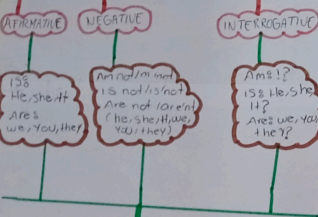 AFIRMATIVE
NEGATIVE
INTERROGATIVE
IS:
He, she, It
Are:
we, you, they
Am not/m not
is not/is/not
Are not (aren't
(he, she, It, we,
you, they)
Am I?
is: He, she,
It?
Are: we, you
they?